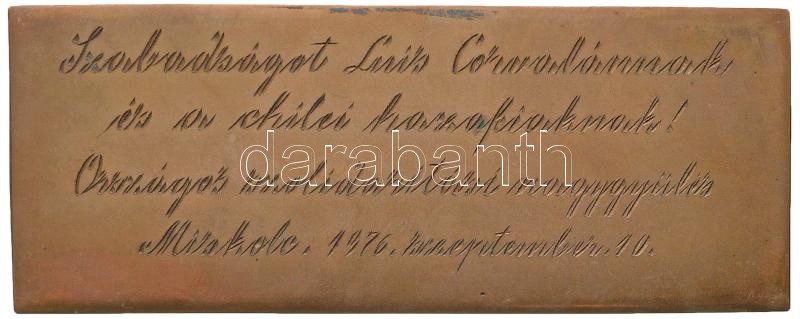 Szabadságot Luis Corvalánnak
és a chilei hazafiaknak!
darabanth
Országos szolidaritási nagygyűlés
Miskolc. 1976. szeptember. 10.